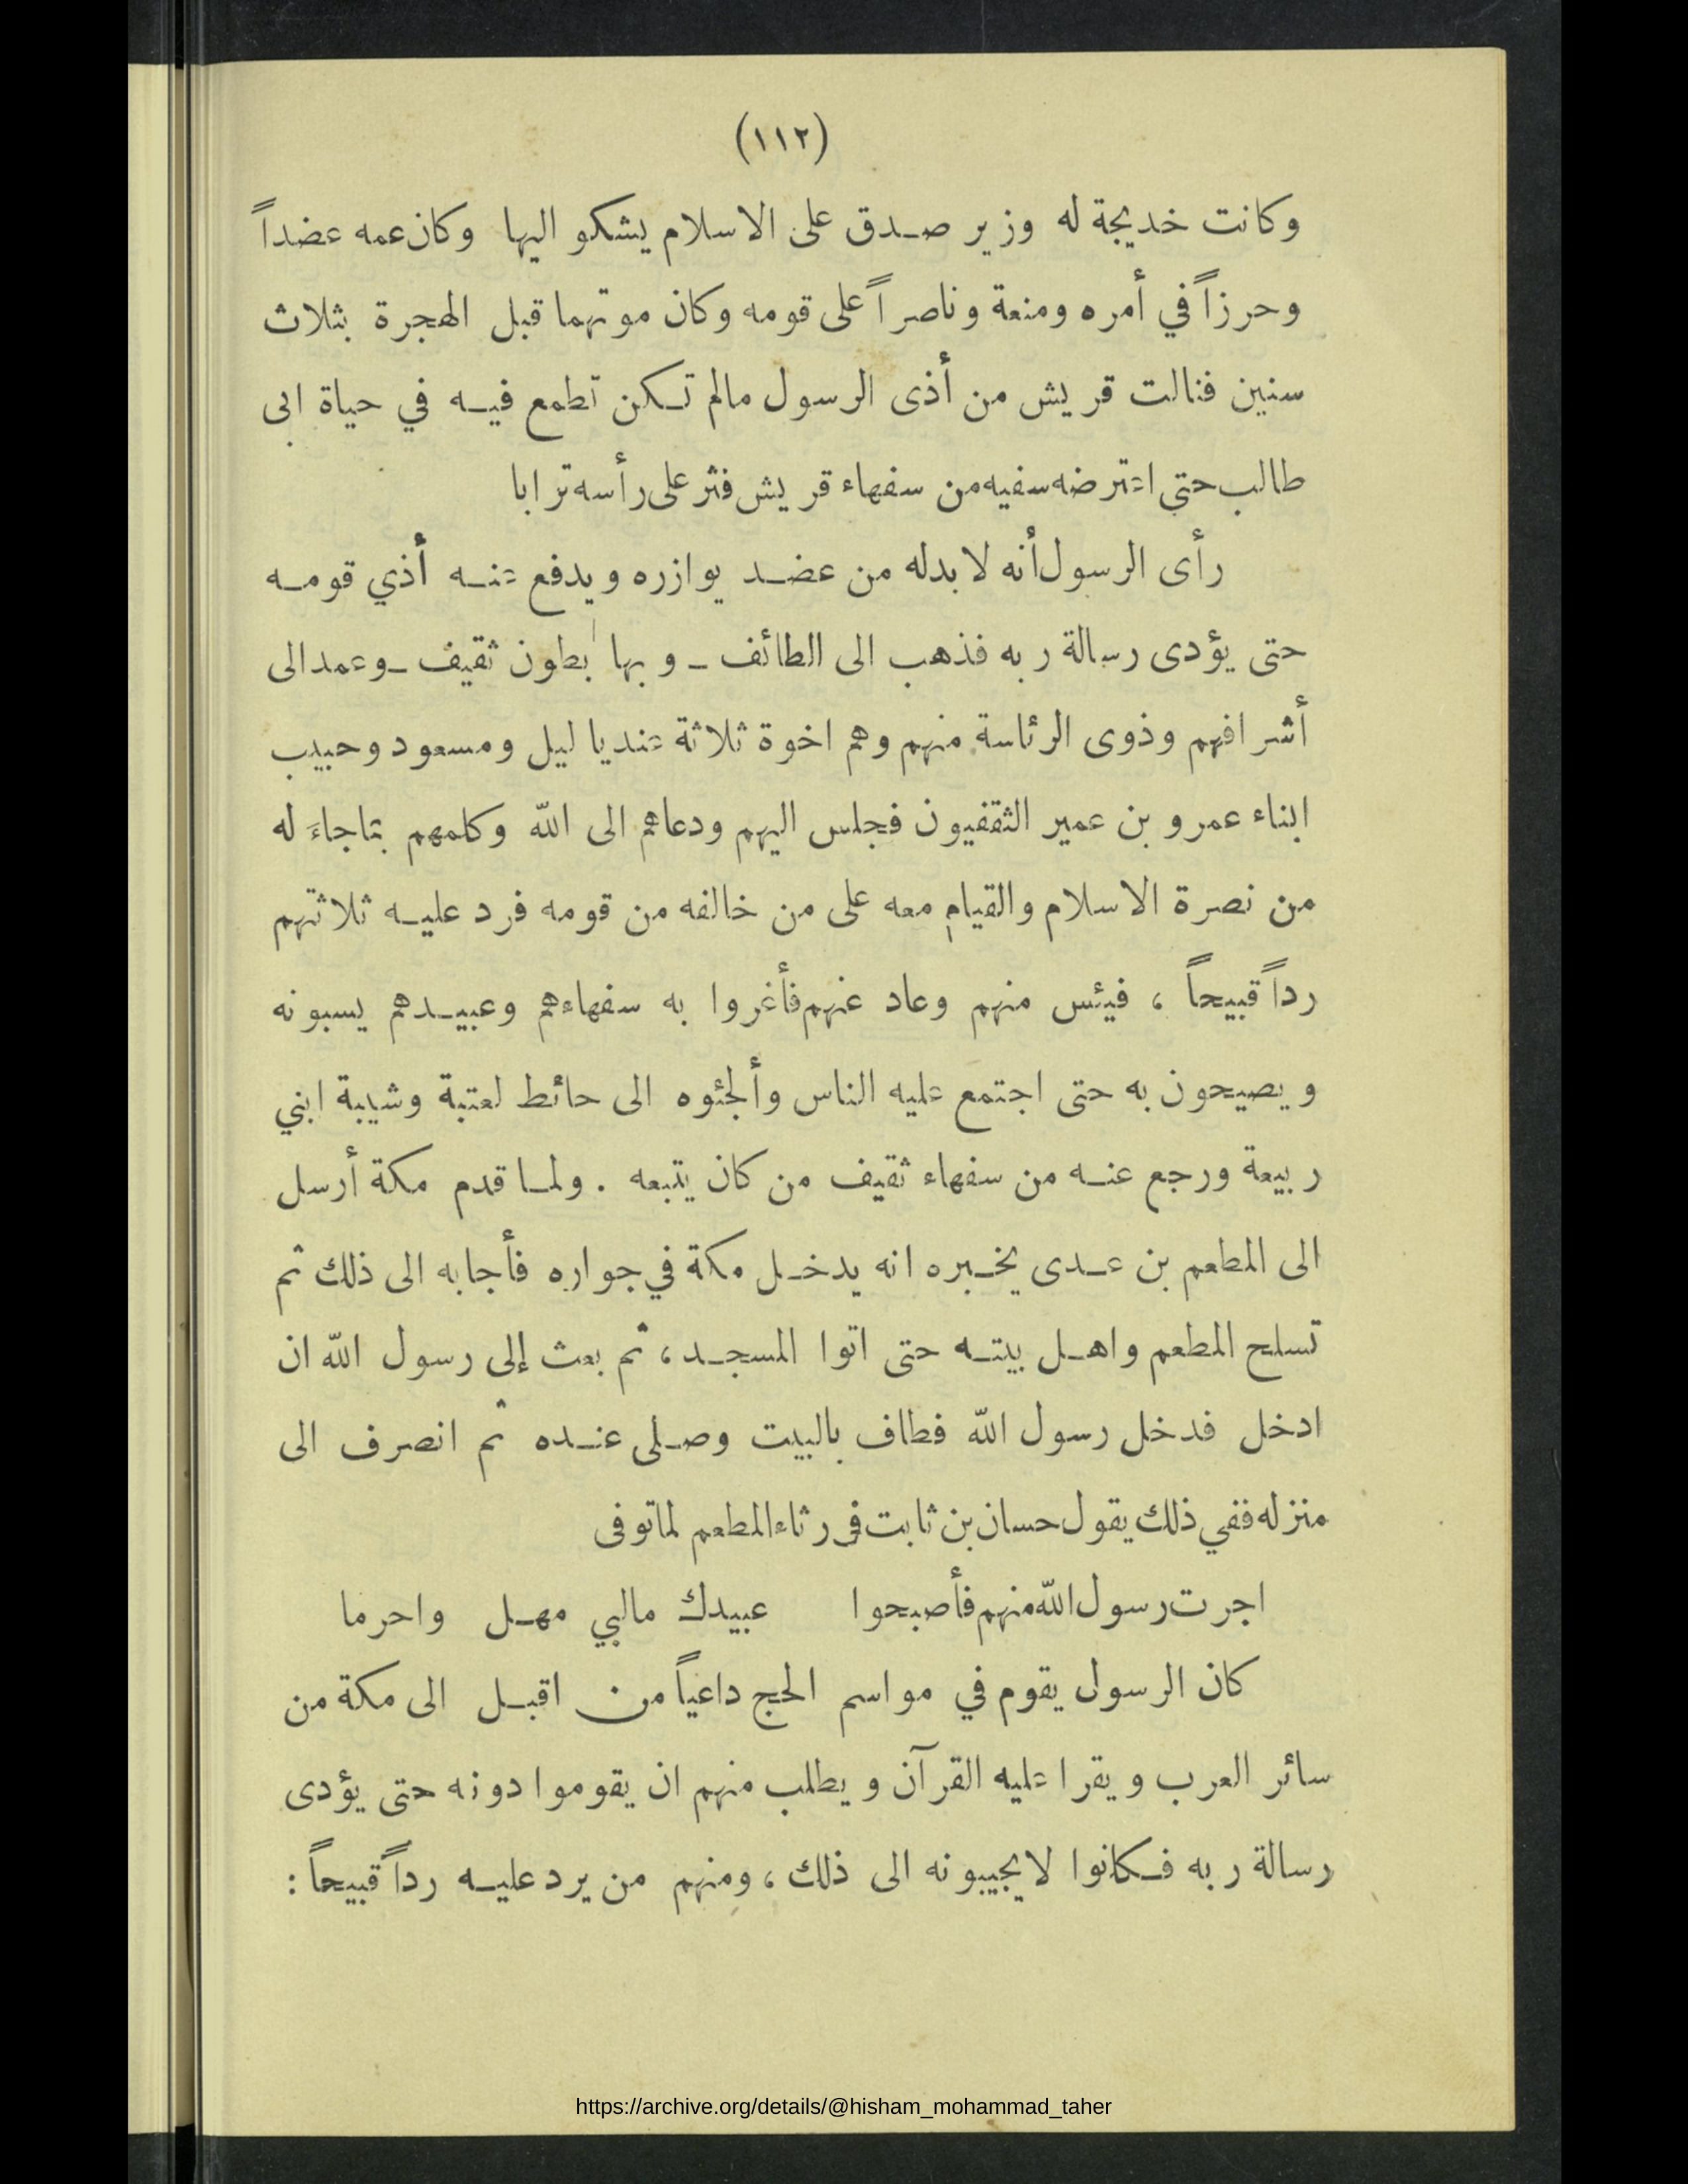 (١١٢)
وكانت خديجة له وزير صدق على الاسلام يشكو اليها وكان عمه عضداً
وحرزاً في أمره ومنعة وناصراً على قومه وكان موتهما قبل الهجرة بثلاث
سنين فنالت قريش من أذى الرسول مالم تكن تطمع فيه في حياة ابى
طالب حتى اعترضه سفيه من سفهاء قريش فنثر على رأسه ترابا
رأى الرسول أنه لابد له من عضد يوازره ويدفع عنه أذي قومه
حتى يؤدى رسالة ربه فذهب الى الطائف ـ وبها بطون ثقيف ـ وعمد الى
أشرافهم وذوى الرئاسة منهم وهم اخوة ثلاثة عنديا ليل ومسعود وحبيب
ابناء عمرو بن عمير الثقفيون فجلس اليهم ودعاهم الى الله وكلمهم بماجاءَ له
من نصرة الاسلام والقيام معه على من خالفه من قومه فرد عليه ثلاثتهم
رداً قبيحاً ، فيئس منهم وعاد عنهم فأغروا به سفهاءهم وعبيدهم يسبونه
ويصيحون به حتى اجتمع عليه الناس وألجئوه الى حائط لعتبة وشيبة ابني
ربيعة ورجع عنه من سفهاء ثقيف من كان يتبعه . ولما قدم مكة أرسل
الى المطعم بن عدى يخبره انه يدخل مكة في جواره فأجابه الى ذلك ثم
تسلح المطعم واهل بيته حتى اتوا المسجد ، ثم بعث إلى رسول الله ان
ادخل فدخل رسول الله فطاف بالبيت وصلى عنده ثم انصرف الى
منزله ففي ذلك يقول حسان بن ثابت فى رثاء المطعم لماتوفى
اجرت رسول الله منهم فأصبحوا عبيدك مالبي مهل واحرما
كان الرسول يقوم في مواسم الحج داعياً من اقبل الى مكة من
سائر العرب ويقرا عليه القرآن ويطلب منهم ان يقوموا دونه حتى يؤدى
رسالة ربه فكانوا لايجيبونه الى ذلك ، ومنهم من يرد عليه رداً قبيحاً :
https://archive.org/details/@hisham_mohammad_taher